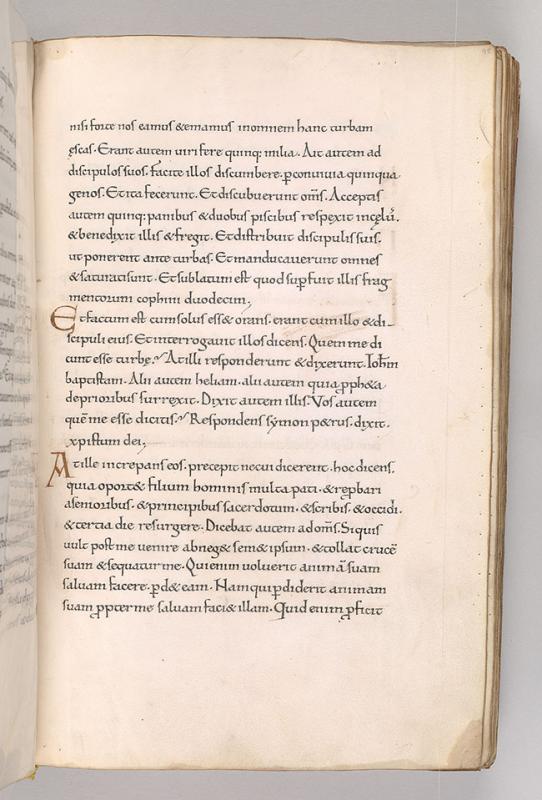 nisi forte nos eamus & emamus in omnem hanc turbam
ęscas. Erant autem viri fere quinq; milia. Ait autem ad
discipulos suos. facite illos discumbere. p̱ convivia quinqua
genos. Et ita fecerunt. Et discubuerunt om̅s. Acceptis
autem quinq; panibus & duobus piscibus respexit in cęlu̅.
& benedixit illis & fregit. Et distribuit discipulis suis.
ut ponerent ante turbas. Et manducaverunt omnes
& saturati sunt. Et sublatum est quod sup̱fuit illis frag
mentorum cophini duodecim;
Et factum est cum solus ess& orans. erant cum illo & di-
scipuli eius. Et interrogavit illos dicens. Quem me di
cunt esse turbę? At illi responderunt & dixerunt. Ioh̅m
baptistam. Alii autem heliam. alii autem quia ꝓph&a
de prioribus surrexit. Dixit autem illis. Vos autem
que̅ me esse dicitis? Respondens symon p&rus. dixit.
xpistum dei;
At ille increpans eos. precepit ne cui dicerent. hoc dicens.
quia oport& filium hominis multa pati. & reꝓbari
a senioribus. & principibus sacerdotum. & scribis. & occidi.
& tertia die resurgere. Dicebat autem ad om̅s. Siquis
vult post me venire abneg& sem& ipsum. & tollat cruce̅
suam & sequatur me. Qui enim voluerit anima̅ suam
salvam facere. p̱d& eam. Nam qui p̱diderit animam
suam ꝓpter me salvam faci& illam. Quid enim ꝓficit